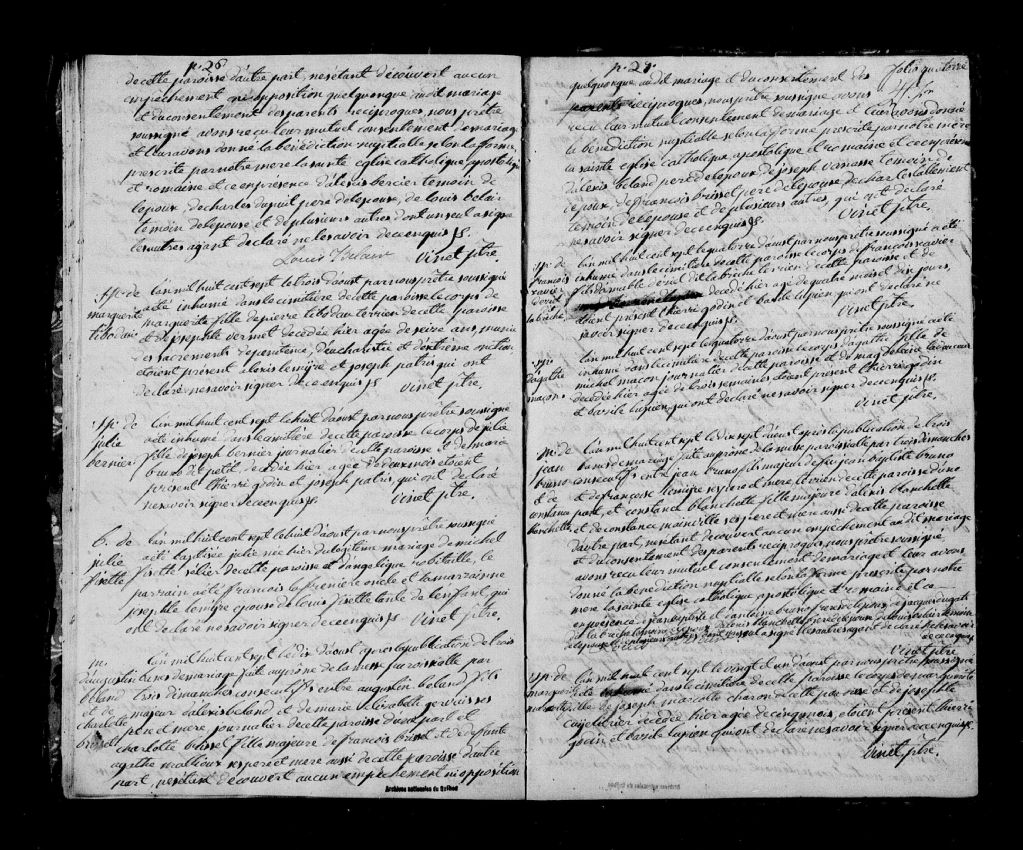 p. 26
de cette paroisse d'autre part, ne s'étant découvert aucun
empêchement ni opposition quelquonque au dit mariage
et du consentement des parents réciproques, nous prêtre
soussigné avons reçu leur mutuel consentement de mariage
et leur avons donné la bénédiction nuptialle selon la forme
prescrite par notre mere la sainte église catholique, apostolique
et romaine et ce en présence d'alexis bercier temoin de
l'epoux, de charles dupuit pere de l'epouse, de louis belair
temoin de l'epouse et de plusieurs autres dont un seul a signé
les autres ayant declaré ne le savoir de ce enquis.
Louis Belair Vinet ptre.
Sp. de
marguerite
tibodau
lan mil huit cent sept le trois daoust par nous prêtre soussigné
a été inhumé dans le cimitière de cette paroisse le corps de
marguerite fille de pierre tibodau terrien de cette paroisse
et de josephte vermet decedée hier agée de seize ans, munie
des sacrements de penitence, d'eucharistie et d'extrême onction
etoient présent alexis lemire et joseph patris qui ont
declaré ne savoir signer de ce enquis. Vinet ptre.
Sp. de
julie
bernier
lan mil huit cent sept le huit daoust par nous prêtre soussigné
a été inhumé dans le cimitière de cette paroisse le corps de julie
fille de joseph bernier journalier de cette paroisse et de marie
petit decedée hier agée de deux mois etoient
present thierri godin et joseph patris, qui ont declaré
ne savoir signer de ce enquis. Vinet ptre.
b. de
julie
pisette
lan mil huit cent sept le huit daoust par nous prêtre soussigné
a été baptisée julie née hier du legitime mariage de michel
pisette sélier de cette paroisse et d'angelique robitaille, le
parrain a été francois lafreniere oncle et la marrainne
josephte lemire epouse de louis pisette tante de l'enfant qui
ont declaré ne savoir signer de ce enquis. Vinet ptre.
m.
d'augustin
beland
et de
charlotte
brissel
lan mil huit cent sept le dix daoust apres la publication de trois
bans de mariage faite au prône de la messe paroissialle par
trois dimanches consecutifs entre augustin beland fils
majeur d'alexis beland et de marie elizabeth gervais ses
pere et mere journalier de cette paroisse d'une part et
charlotte brissel fille majeure de francois brissel et de defunte
agathe mathieux ses pere et mere aussi de cette paroisse d'autre
part, ne s'etant decouvert aucun empêchement ni opposition
Archives nationales du Québec
p. 27.
folio quatorze
quelquonque au dit mariage et du consentement des
parents reciproques, nous prêtre soussigné avons
recu leur mutuel consentement de mariage et leur avons donné
la bénédiction nuptialle selon la forme prescrite par notre mere
la sainte eglise catholique, apostolique et romaine et ce en présence
d'alexis beland pere de l'epoux, de joseph temoin de
l'epoux, de francois brissel pere de l'epouse de charles lallement
temoin de l'epouse et de plusieurs autres, qui ont declaré
ne savoir signer de ce enquis. Vinet ptre.
Sp. de
francois
xavier
la brèche
lan mil huit cent sept le quatorze daoust par nous prêtre soussigné a été
inhumé dans le cimitière de cette paroisse le corps de francois xavier
fils de la brèche terrien de cette paroisse et de
decedé hier agé de quatre mois et dix jours,
etoient present thierri godin et basile lupien qui ont declaré ne
savoir signer de ce enquis. Vinet ptre.
Sp.
d'agathe
maçon
lan mil huit cent sept le quatorze daoust par nous prêtre soussigné a été
inhumé dans le cimitière de cette paroisse le corps d'agathe fille de
michel maçon journalier de cette paroisse et de magdelaine
decedée hier agée de trois semaines etoient present thierri godin
et basile lupien, qui ont declaré ne savoir signer de ce enquis.
Vinet ptre.
m. de
jean
bruno
et de
constance
blanchette
lan mil huit cent sept le dix sept daoust après la publication de trois
bans de mariage faite au prône de la messe paroissialle par trois dimanches
consecutifs entre jean bruno fils majeur de feu jean baptiste bruno
et de francoise lemire ses pere et mere terrien de cette paroisse d'une
part, et constance blanchette fille majeure d'alexis blanchette
et de constance mainville ses pere et mere aussi de cette paroisse
d'autre part, ne s'étant decouvert aucun empêchement au dit mariage
et du consentement des parents reciproques, nous prêtre soussigné
avons recu leur mutuel consentement de mariage et leur avons
donné la bénédiction nuptialle selon la forme prescrite par notre
mere la sainte eglise catholique apostolique et romaine et ce
en présence de jean baptiste et antoine bruno freres de l'epoux, de
d'alexis blanchette pere de l'epouse, de
l'epouse de plusieurs autres dont un seul a signé les autres ayant declaré ne le savoir
de ce enquis.
Vinet ptre
Sp. de
marguerite
lan mil huit cent sept le vingt et un daoust par nous prêtre soussigné
a été inhumé dans le cimitière de cette paroisse le corps de marguerite
fille de joseph charon de cette paroisse et de josephte
decedée hier agée de cinq mois, etoient present thierri
godin et basile lupien qui ont declaré ne savoir signer de ce enquis.
Vinet ptre.
Archives nationales du Québec